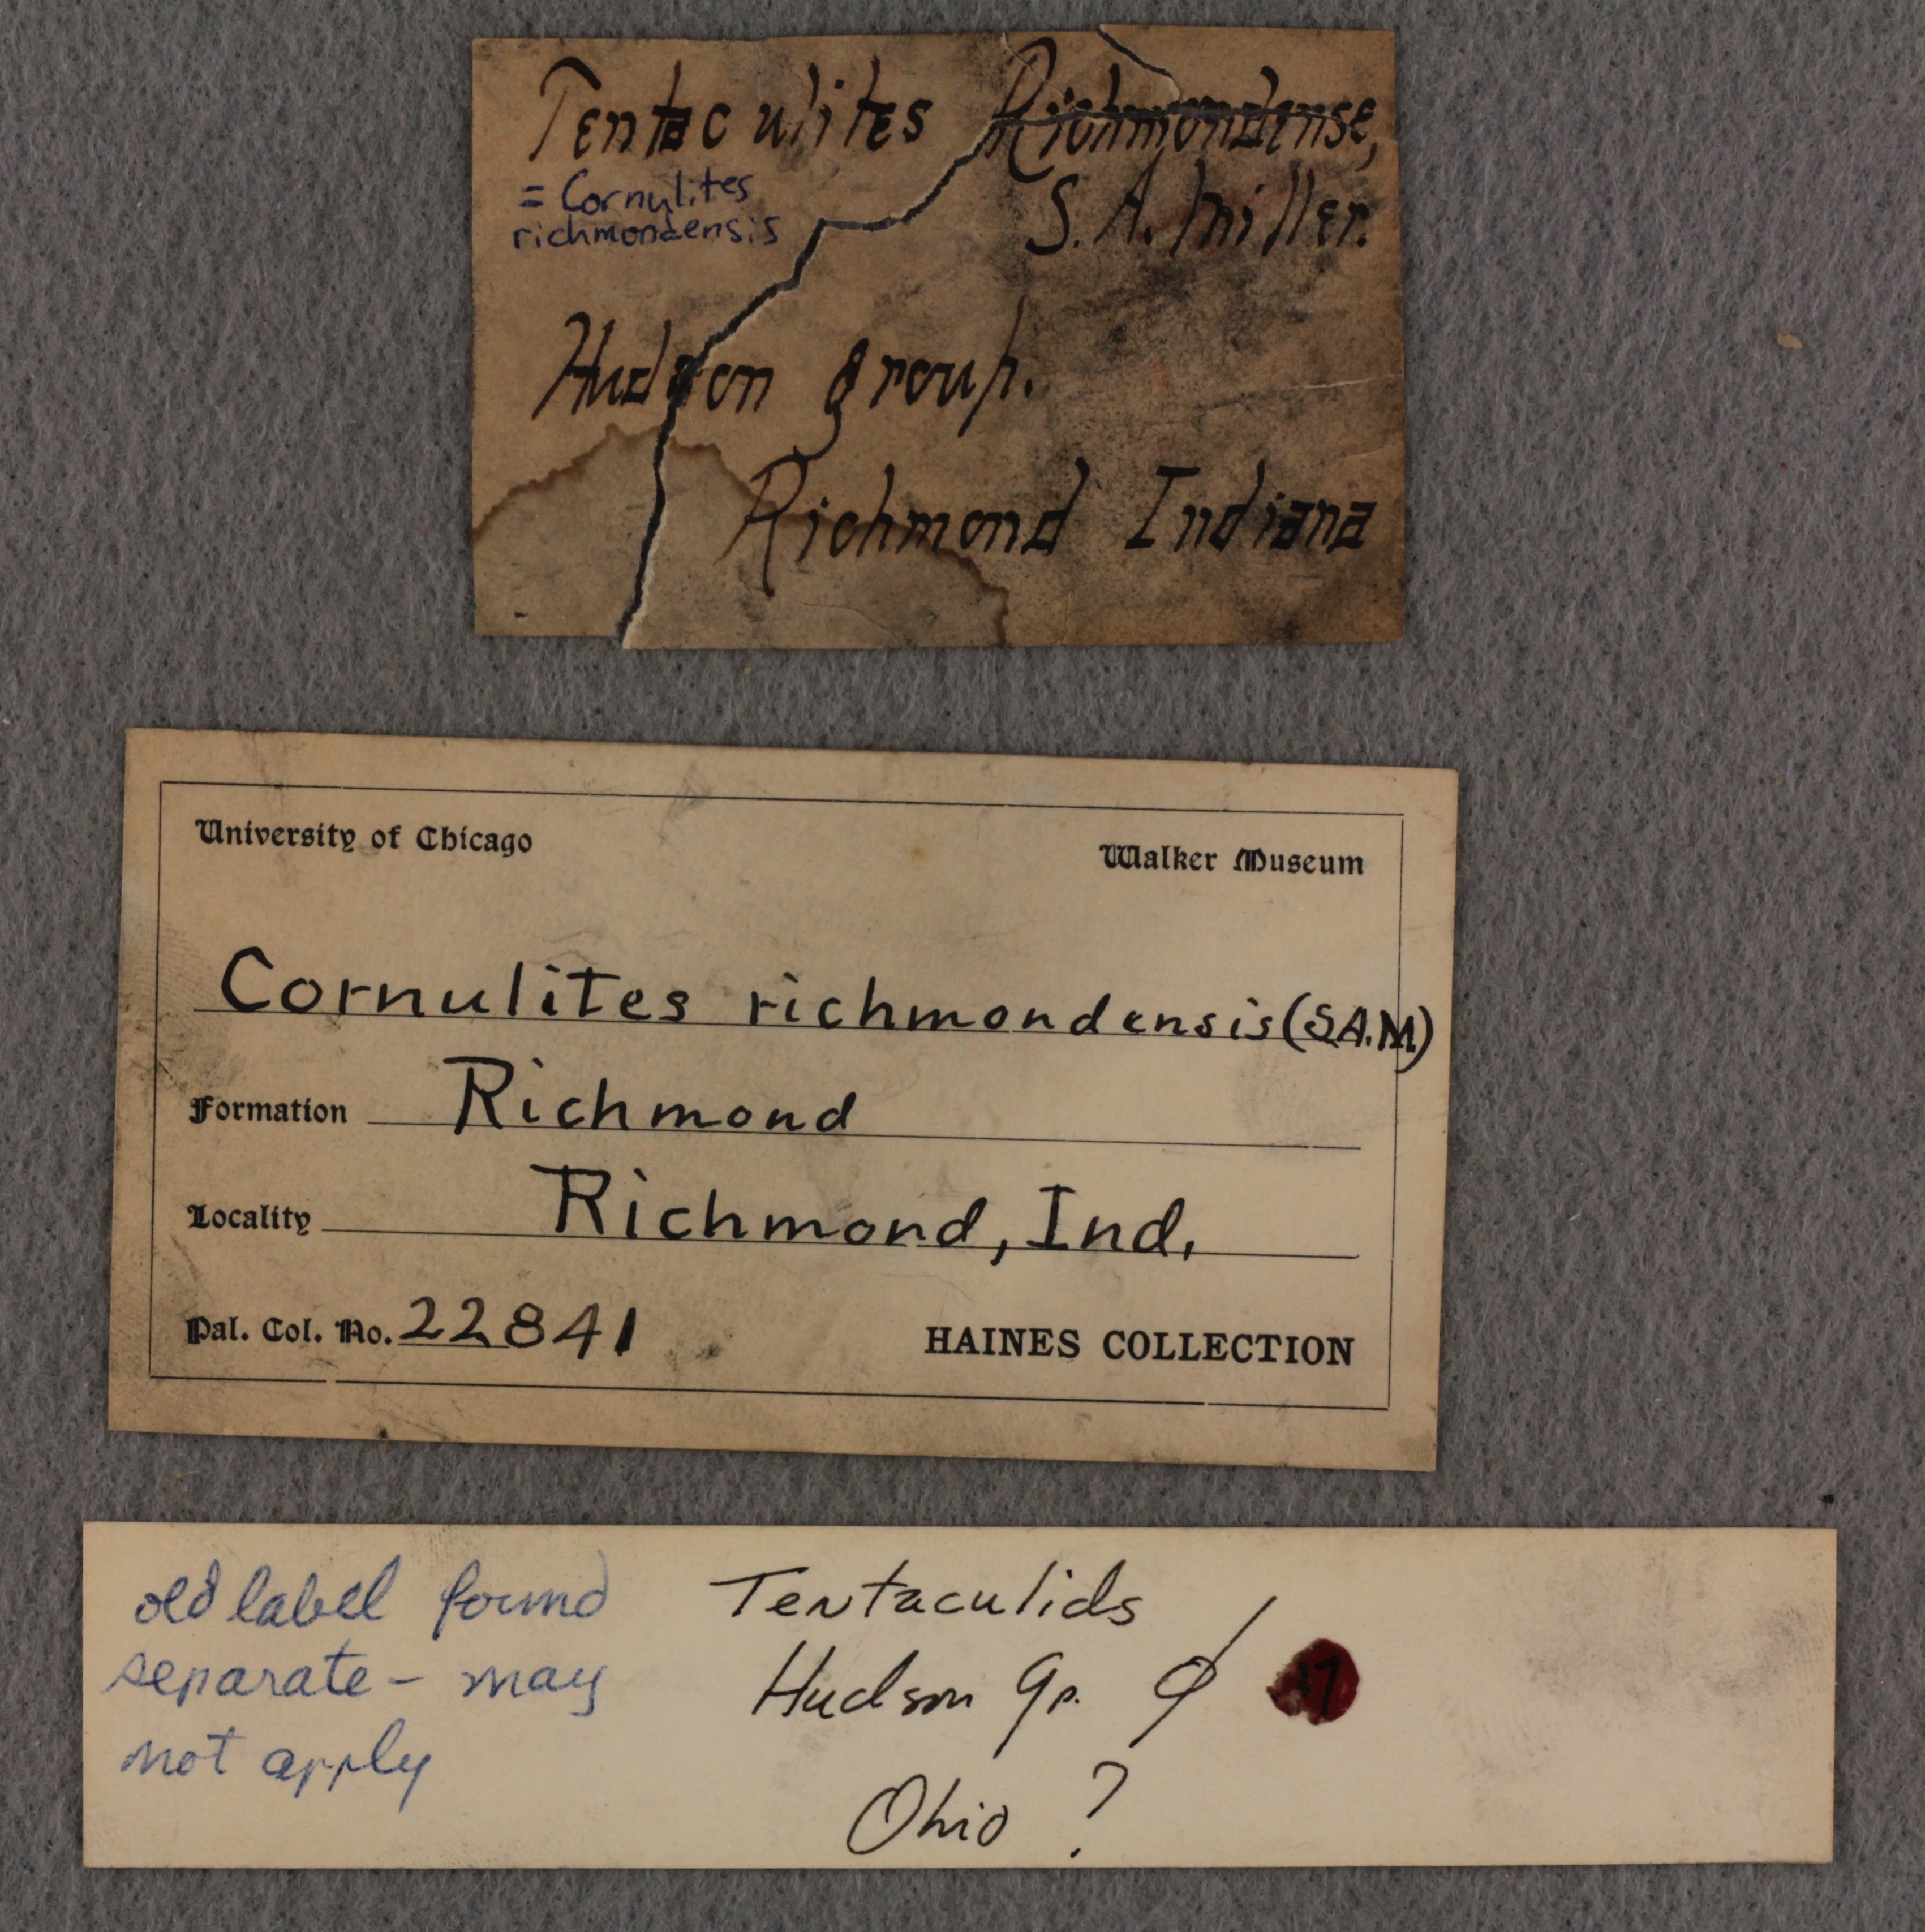 Tentaculites Richmondense,
S. A. Miller.
= Cornulites
richmondensis
Hudson group.
Richmond Indiana
University of Chicago
Walker Museum
Cornulites richmondensis (S.A.M.)
Formation Richmond
Locality Richmond, Ind.
Pal. Col. No. 22841
HAINES COLLECTION
old label found
separate - may
not apply
Tentaculids
Hudson Gp.
Ohio ?